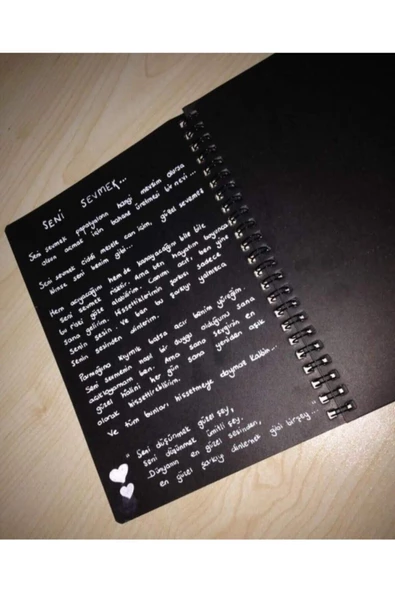 SENİ SEVMEK...
Seni sevmek papatyalara hangi mevsim olursa
olsun açmak için bahane üretmesi bir nevi...
Biraz seni benim gibi...
Seni sevmek ciddi mesele can içim, güzel sevmek
Hem acıyacağını hem de kanayacağını bile bile
seni sevmek risktir. Ama ben hayatım boyunca
bu riski göze alabilirim. Canım acır, ben yine
sana gelirim. Hissettiklerimin şarkısı sadece
senin sesin. Ve ben bu şarkıyı yalnızca
senin sesinden dinlerim.
Parmağına kıymık batsa acır benim yüreğim.
Seni sevmenin nasıl bir duygu olduğunu sana
açıklayamam ben. Ama sana sevginin en
güzel halini her gün sana yeniden aşık
olarak hissettirebilirim.
Ve tüm bunları hissetmeye doymaz kalbin...
" Seni düşünmek güzel şey,
seni düşünmek ümitli şey.
Dünyanın en güzel sesinden,
en güzel şarkıyı dinlemek gibi birşey... "